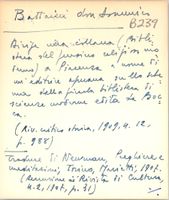 Battaini don Domenico
B239
Dirige una collana (Bibli
oteca del pensiero religioso mo
derno) a Piacenza, a nome di
un editore
ma della piccola biblioteca di
scienze moderne edita da Boc
ca.
(Riv. critica storia, 1909, n. 12,
p. 988)
Tradusse di Newman, Preghiere e
meditazioni, Torino, Marietti, 1907.
(Recensione in Rivista di Cultura,
n. 2, 1907, p. 31)